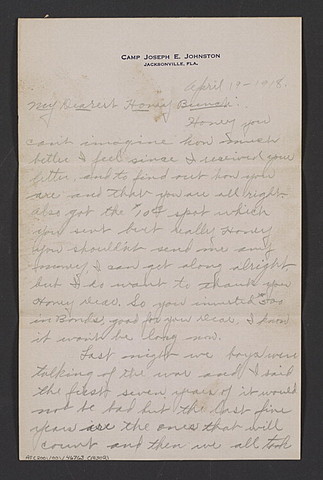 CAMP JOSEPH E. JOHNSTON
JACKSONVILLE, FLA.
April 19-1918.
My Dearest Honey
Honey you
can't imagine how much
better I feel since I received your
letter, and to find out how you
are and that you are all right.
Also got the spot which
you sent but really Honey
you shouldnt send me any
money, I can get along alright
but I want to thank you
Honey dear. So you
in Bonds, good for you Dear. I know
it wont be long now.
Last night we boys were
talking of the war and I said
the first seven years of it would
not be bad but the last five
years are the ones that will
count and then we all took